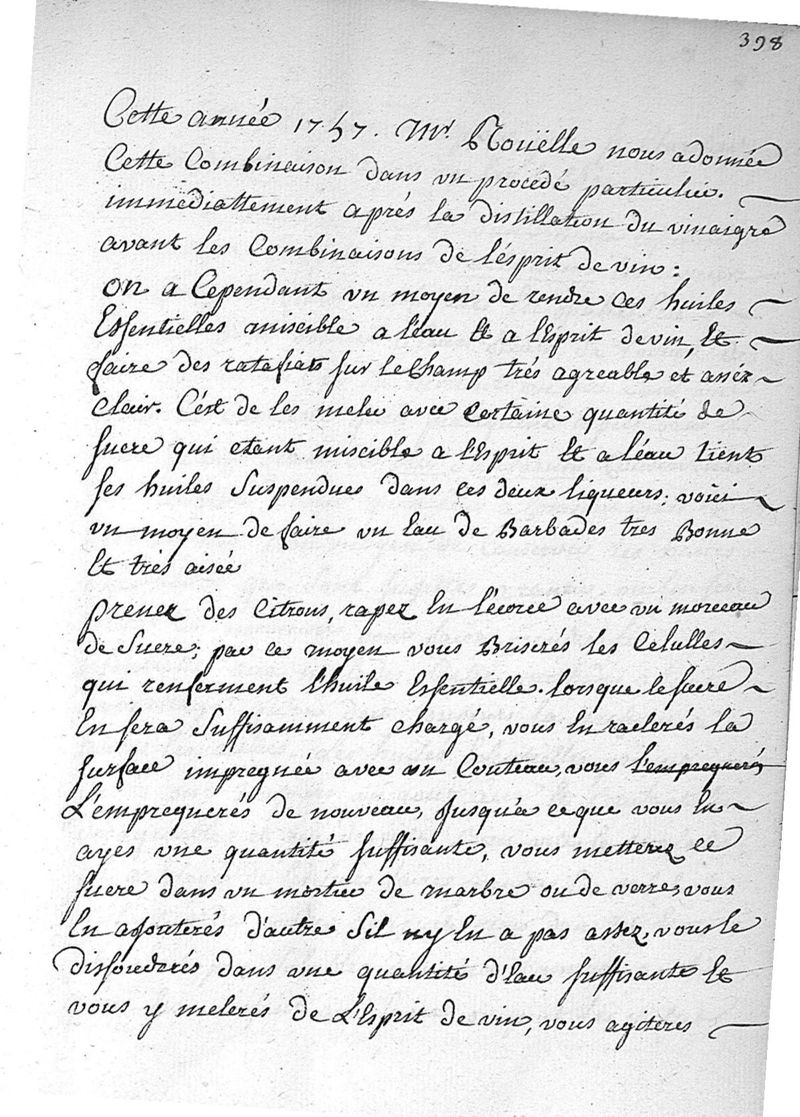 398
Cette année 1757. Mr. Roüelle nous a donnée
Cette Combinaison dans un procedé particulier.
immédiattement aprés la distillation du vinaigre
avant les Combinaisons de l'ésprit de vin :
on a Cependant un moyen de rendre ces huiles
Essentielles miscible a l'eau Et a l'Esprit de vin, Et
faire des ratafiats sur le Champ trés agreable et assez
Clair. C'est de les meler avec certaine quantité de
sucre qui etant miscible a l'Esprit Et a l'éau tient
ses huiles Suspendues dans ces deux liqueurs; voici
un moyen de faire un Eau de Barbades tres Bonne
Et trés aisée
prenez des Citrons, rapez En l'écorce avec un morceau
de Sucre; par ce moyen vous Briserés les Celulles
qui renferment l'huile Essentielle. lorsque le sucre
En sera Suffisamment chargé, vous En raclerés la
surface impregnée avec un Couteau, vous l'empregnerés
L'empregnerés de nouveau, jusqu'a ce que vous En
ayes une quantité suffisante, vous metterez ce
sucre dans un mortier de marbre ou de verre, vous
En ajouterés d'autre S'il n'y En a pas assez, vous le
dissouderés dans une quantité d'Eau suffisante Et
vous y melerés de L'Esprit de vin, vous agiteres